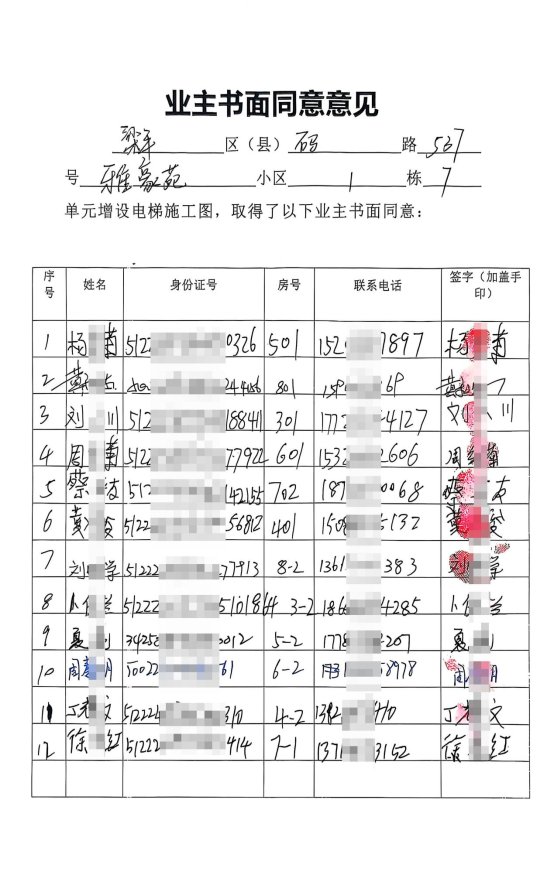 业主书面同意意见
梁平 区（县） 石马 路 537
号 雅豪苑 小区 1 栋 7
单元增设电梯施工图，取得了以下业主书面同意：
序号 姓名 身份证号 房号 联系电话 签字（加盖手印）
1 杨 菊 5122 0326 501 152 7897 杨 菊
2 801 159 69
3 刘 川 512 18841 301 177 4127 刘 川
4 周 菊 5122 77922 601 153 2606 周 菊
5 蔡 512 42155 702 187 0068 蔡
6 黄 5122 56812 401 150 5132 黄
7 刘 学 51222 77913 8-2 1361 383 刘 学
8 兰 51222 3-2 186 4285 兰
9 夏 0012 5-2 1778 207 夏
10 周 月 50022 61 6-2 8978 周 月
11 丁 文 51222 310 4-2 丁 文
12 徐 红 51222 414 7-1 1371 3152 徐 红